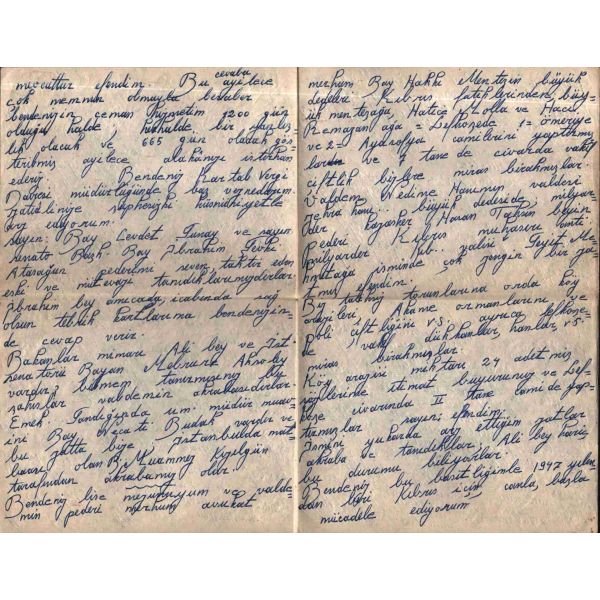 mevcuttur efendim. Bu cevaba ayilece
çok memnun olmakla beraber
bendenizin ceman hizmetim 1200 gün
olduğu halde, herhalde bir yanlış=
lık olacak ve 665 gün olarak gös=
terilmiş ayilece alakanızı istirham
ederiz. Bendeniz Kartal Vergi
Dairesi müdürlüğünde baş
arz ediyorum.
sayın: Bay Cevdet Sunay ve sayın
Senato Bşk. Bay İbrahim Şevki
Atasagun pederimi seven, taktir eden
eski ve mütevazi tanıdıklarımızdırlar.
İbrahim bey amcada, icabında sağ
olsun tebrik kartlarıma bendenizin=
de cevap verir.
Bakanlar mimarı Ali bey ve
Bayan Mebrure Aksoley
vardır, bilmem tanırmısınız bu
şahıslar validemin akrabasıdırlar.
Emek Sandığında um. müdür muav
ini Bay Necati Budak vardır ve
bu zatta bize İstanbulda mat=
baası olan B. Muammer Kızılgün
tarafından akrabamız olur.
Bendeniz lise mezunuyum ve valde=
min pederi merhum avukat
merhum: Bay Hakkı Menteşin büyük
dedeleri Kıbrıs fatihlerinden, büy=
ük menteşağa Hatice Molla ve Hacı
Ramazan ağa = Lefkoşede 1= ömeriye
ve 2= Aydsofya camilerini yaptırmış
ların ve 9 tane de civarda vakıf
çiftlik bizlere miras bırakmışlar.
Validem Nedime Hanımın validesi
Zehra hanı... büyük dedeside, milyar=
der kazasker Hasan Tahsin beyin
pederi Kıbrıs muhasırı
milyarder Kıb. valisi Seyit Me=
hmetağa isminde çok zengin bir za=
tmış efendim.
Biz talihsiz torunlarına orda köy
arazileri, Akama ormanlarını ve
çiftliğini v.s. ayrıca lefkoşe=
de vakıf dükkanlar, hanlar, v.s.
miras bırakmışlar.
Köy arazisi miktarı, 24 adet miş
sözlerime itimat buyurunuz ve Lef=
koşe civarında II tane cami de yap=
tırmışlar sayın; efendim.
İsmini yukarda arz ettiğim zatlar
akraba ve tanıdıklar, Ali bey hariç
bu durumu biliyorlar.
Bendeniz bu basitliğimle 1947 yılın=
dan beri Kıbrıs için canla, başla
mücadele ediyorum